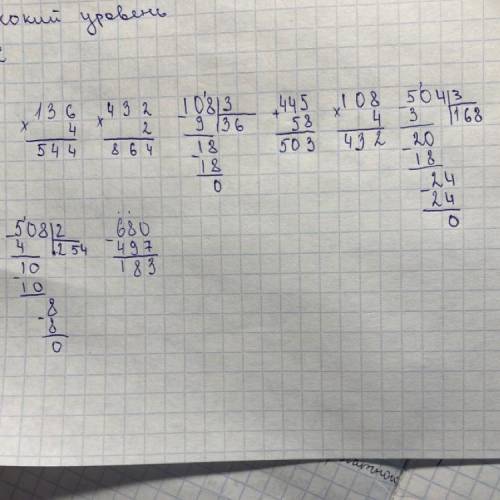 уровень
136
× 4
544
432
× 2
864
108 | 3
- 9 | 36
18
- 18
0
445
+ 58
503
108
× 4
432
504 | 3
- 3 | 168
20
- 18
24
- 24
0
508 | 2
- 4 | 254
10
- 10
8
- 8
0
680
- 497
183